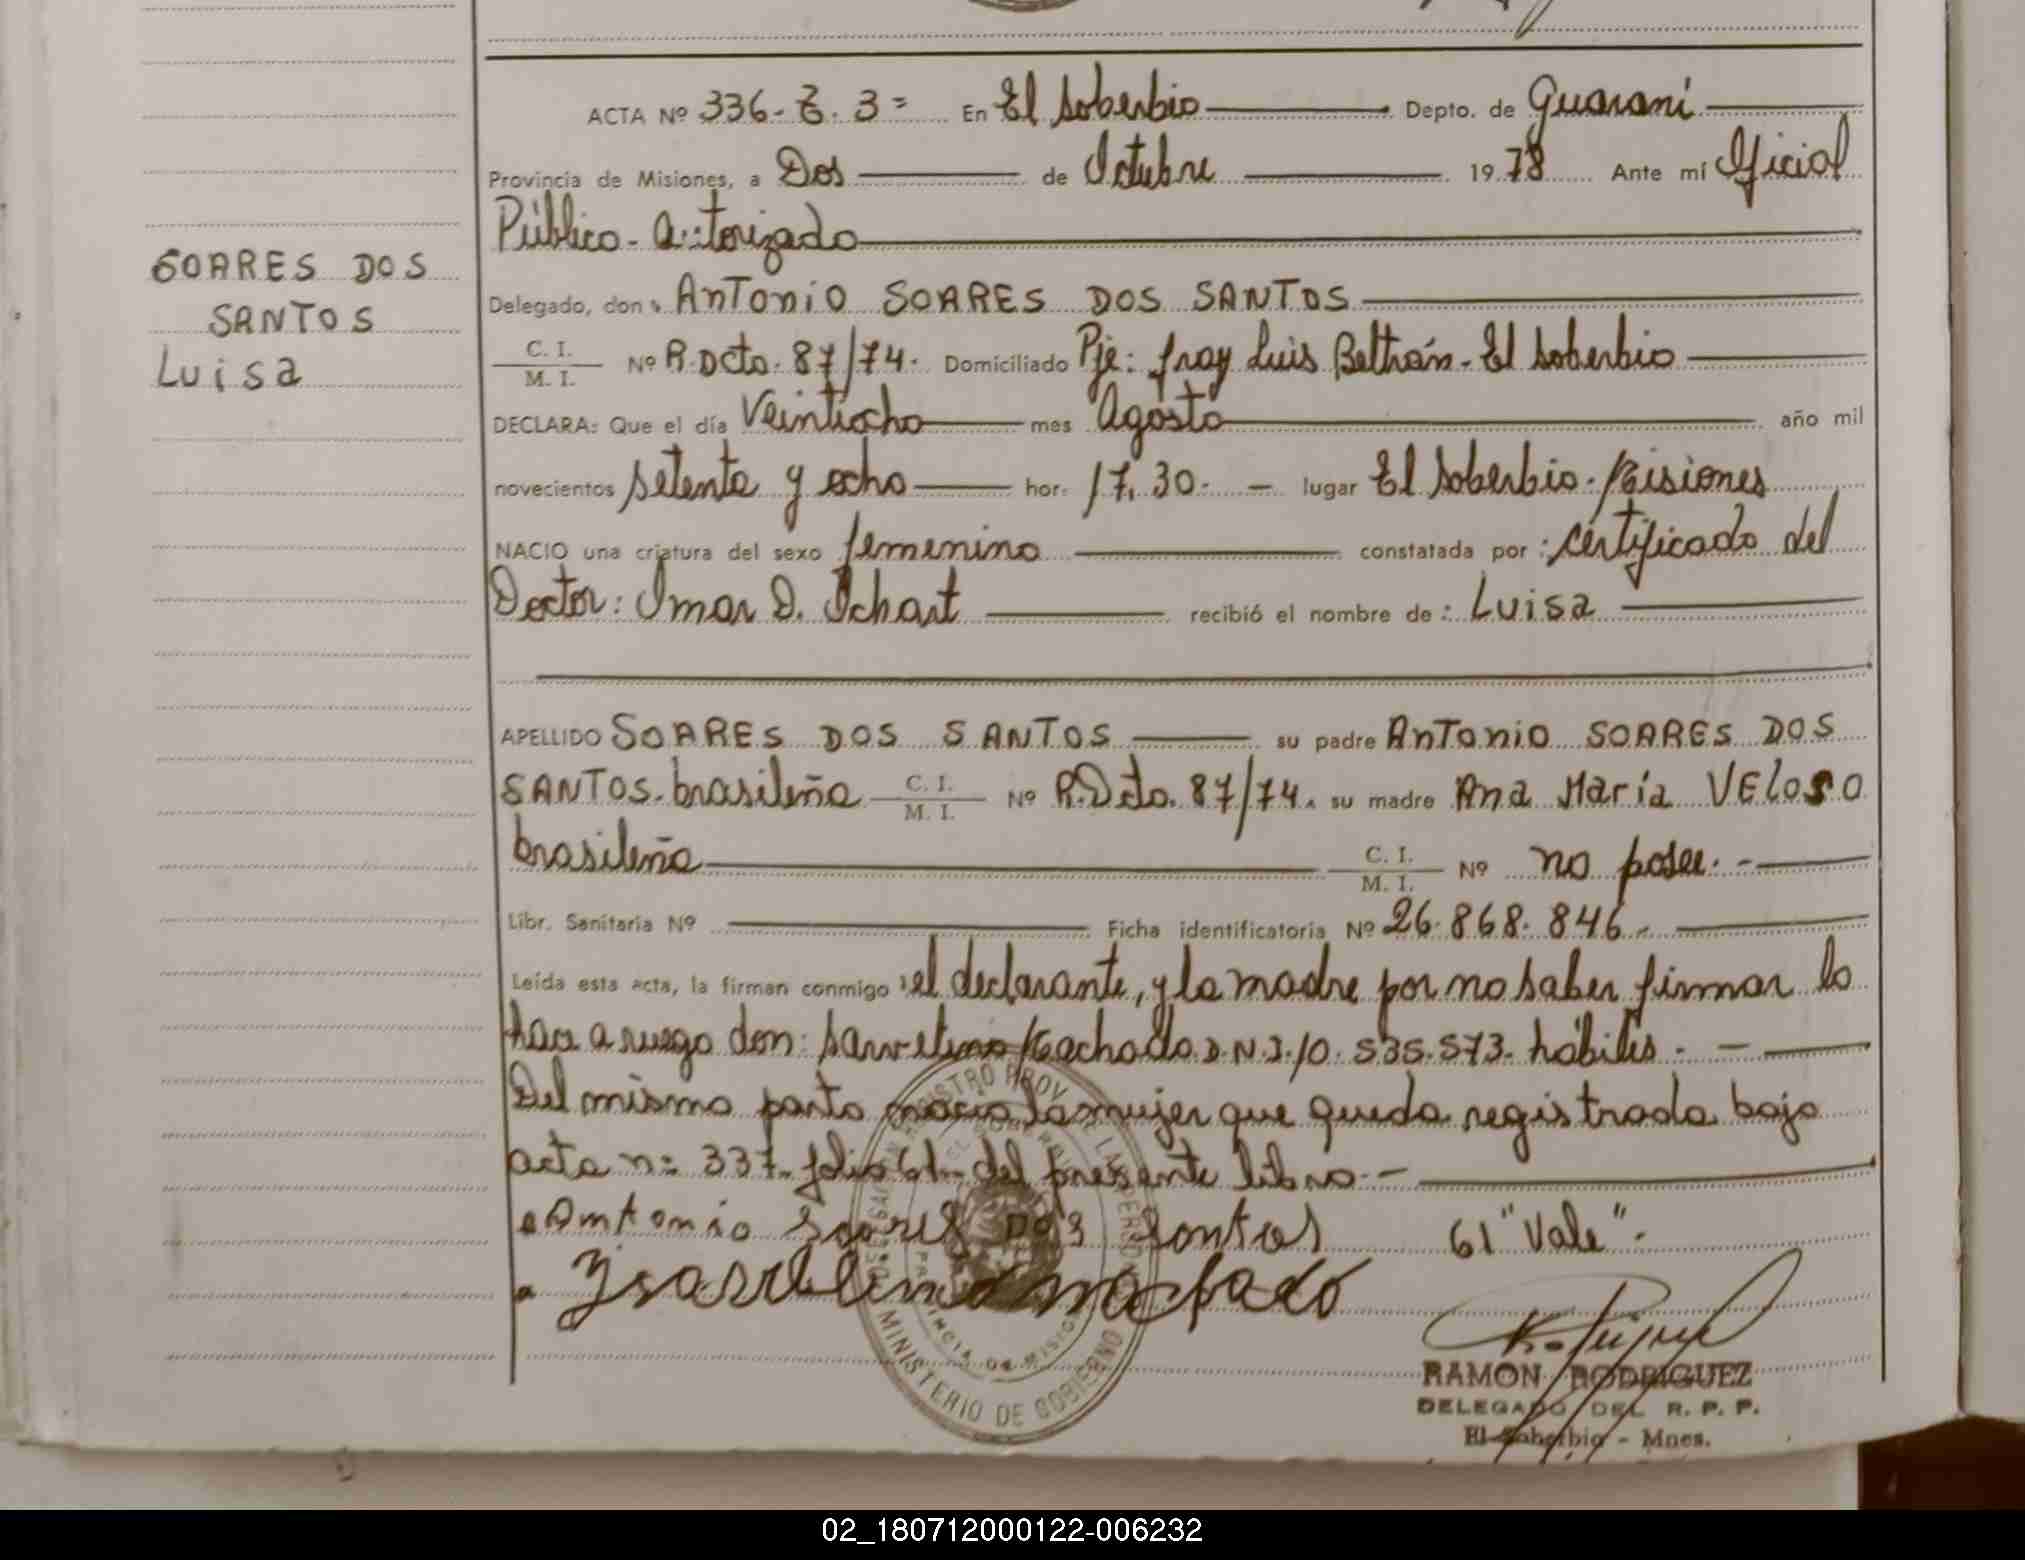 ACTA Nº 336- Z. 3= En El Soberbio Depto. de Guaraní
Provincia de Misiones, a Dos de Octubre 19 78 Ante mí Oficial
Público Autorizado
Delegado, don Antonio SOARES DOS SANTOS
C. I. / M. I. Nº R.Dcto. 87/74. Domiciliado Pje: fray Luis Beltrán - El Soberbio
DECLARA: Que el día Veintiocho mes Agosto año mil
novecientos setenta y ocho hor. 17,30. lugar El Soberbio. Misiones
NACIO una criatura del sexo femenino constatada por: certificado del
Doctor: Omar D. Ochart recibió el nombre de: Luisa
SOARES DOS
SANTOS
Luisa
APELLIDO SOARES DOS SANTOS su padre Antonio SOARES DOS
SANTOS. brasileña C. I. / M. I. Nº R.Dcto. 87/74. su madre Ana María VELOSO
brasileña C. I. / M. I. Nº no posee.
Libr. Sanitaria Nº Ficha identificatoria Nº 26.868.846.
Leída esta acta, la firman conmigo: el declarante, y la madre por no saber firmar lo
hace a ruego don: Machado D.N.I. 10.535.573. hábiles.
Del mismo parto nacio la mujer que queda registrada bajo
acta nº 337. folio 61 del presente libro.
Antonio Soares Dos Santos 61 "Vale".
machado
RAMON RODRIGUEZ
DELEGADO DEL R. P. P.
El Soberbio - Mnes.
MINISTERIO DE GOBIERNO
PROVINCIA DE MISIONES
02_180712000122-006232